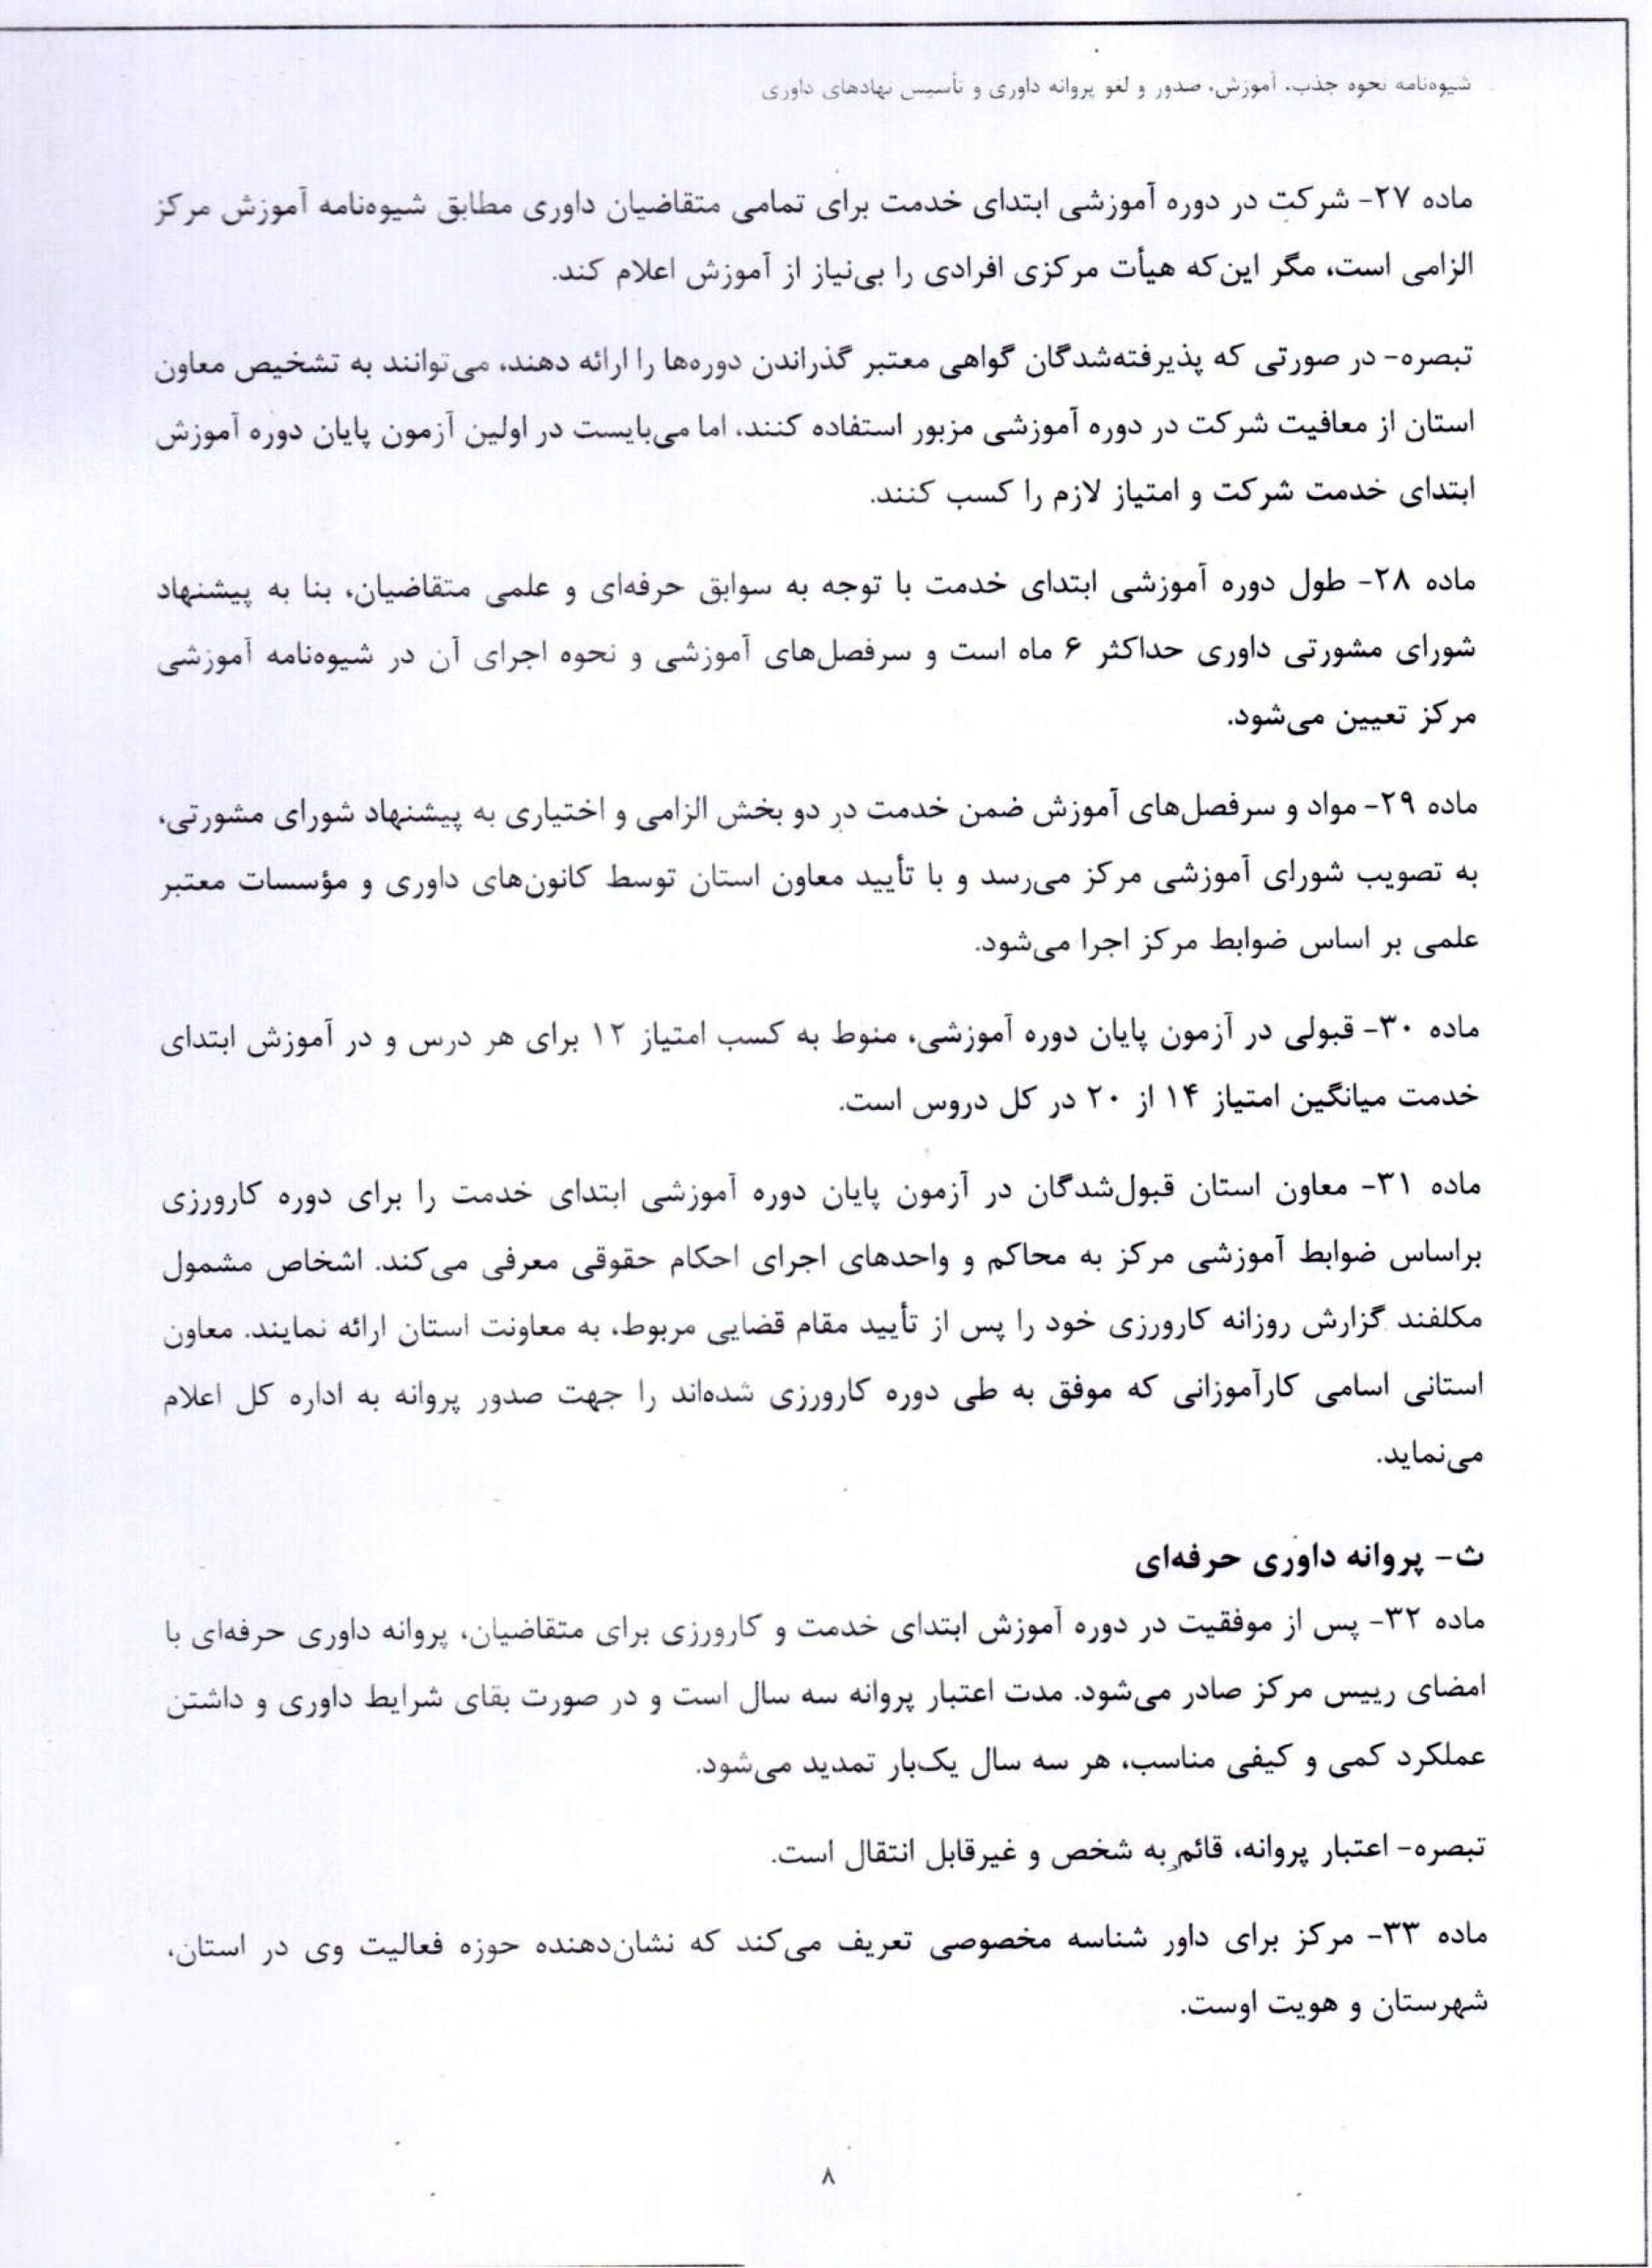 شیوه‌نامه نحوه جذب، آموزش، صدور و لغو پروانه داوری و تأسیس نهادهای داوری
ماده ۲۷- شرکت در دوره آموزشی ابتدای خدمت برای تمامی متقاضیان داوری مطابق شیوه‌نامه آموزش مرکز
الزامی است، مگر این‌که هیأت مرکزی افرادی را بی‌نیاز از آموزش اعلام کند.
تبصره- در صورتی که پذیرفته‌شدگان گواهی معتبر گذراندن دوره‌ها را ارائه دهند، می‌توانند به تشخیص معاون
استان از معافیت شرکت در دوره آموزشی مزبور استفاده کنند، اما می‌بایست در اولین آزمون پایان دوره آموزش
ابتدای خدمت شرکت و امتیاز لازم را کسب کنند.
ماده ۲۸- طول دوره آموزشی ابتدای خدمت با توجه به سوابق حرفه‌ای و علمی متقاضیان، بنا به پیشنهاد
شورای مشورتی داوری حداکثر ۶ ماه است و سرفصل‌های آموزشی و نحوه اجرای آن در شیوه‌نامه آموزشی
مرکز تعیین می‌شود.
ماده ۲۹- مواد و سرفصل‌های آموزش ضمن خدمت در دو بخش الزامی و اختیاری به پیشنهاد شورای مشورتی،
به تصویب شورای آموزشی مرکز می‌رسد و با تأیید معاون استان توسط کانون‌های داوری و مؤسسات معتبر
علمی بر اساس ضوابط مرکز اجرا می‌شود.
ماده ۳۰- قبولی در آزمون پایان دوره آموزشی، منوط به کسب امتیاز ۱۲ برای هر درس و در آموزش ابتدای
خدمت میانگین امتیاز ۱۴ از ۲۰ در کل دروس است.
ماده ۳۱- معاون استان قبول‌شدگان در آزمون پایان دوره آموزشی ابتدای خدمت را برای دوره کارورزی
براساس ضوابط آموزشی مرکز به محاکم و واحدهای اجرای احکام حقوقی معرفی می‌کند. اشخاص مشمول
مکلفند گزارش روزانه کارورزی خود را پس از تأیید مقام قضایی مربوط، به معاونت استان ارائه نمایند. معاون
استانی اسامی کارآموزانی که موفق به طی دوره کارورزی شده‌اند را جهت صدور پروانه به اداره کل اعلام
می‌نماید.
ث- پروانه داوری حرفه‌ای
ماده ۳۲- پس از موفقیت در دوره آموزش ابتدای خدمت و کارورزی برای متقاضیان، پروانه داوری حرفه‌ای با
امضای رییس مرکز صادر می‌شود. مدت اعتبار پروانه سه سال است و در صورت بقای شرایط داوری و داشتن
عملکرد کمی و کیفی مناسب، هر سه سال یک‌بار تمدید می‌شود.
تبصره- اعتبار پروانه، قائم به شخص و غیرقابل انتقال است.
ماده ۳۳- مرکز برای داور شناسه مخصوصی تعریف می‌کند که نشان‌دهنده حوزه فعالیت وی در استان،
شهرستان و هویت اوست.
۸